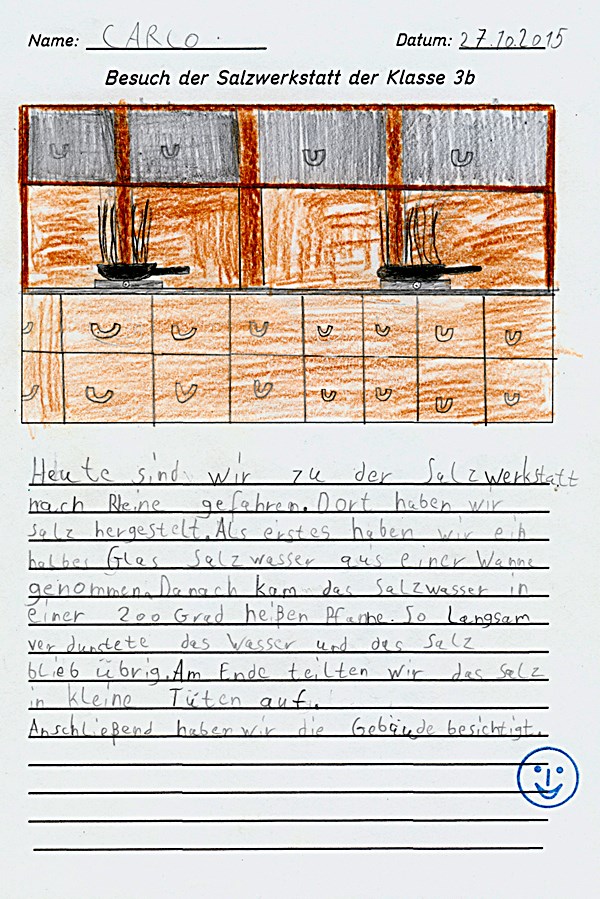 Name: CARLO.
Datum: 27.10.2015
Besuch der Salzwerkstatt der Klasse 3b
Heute sind wir zu der Salzwerkstatt
nach Rheine gefahren. Dort haben wir
Salz hergestelt. Als erstes haben wir ein
halbes Glas Salzwasser aus einer Wanne
genommen. Danach kam das Salzwasser in
einer 200 Grad heißen Pfanne. So langsam
verdunstete das Wasser und das Salz
blieb übrig. Am Ende teilten wir das Salz
in kleine Tüten auf.
Anschließend haben wir die Gebäude besichtigt.